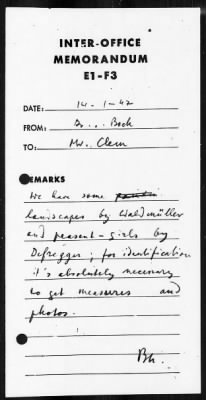 INTER-OFFICE
MEMORANDUM
E1-F3
DATE: 14-1-47
FROM: Dr. Boch
TO: Mr. Clem
REMARKS
We have some
landscapes by Waldmüller
and peasent-girls by
Defregger; for identification
it's absolutely necessary
to get measures and
photos.
Bh.